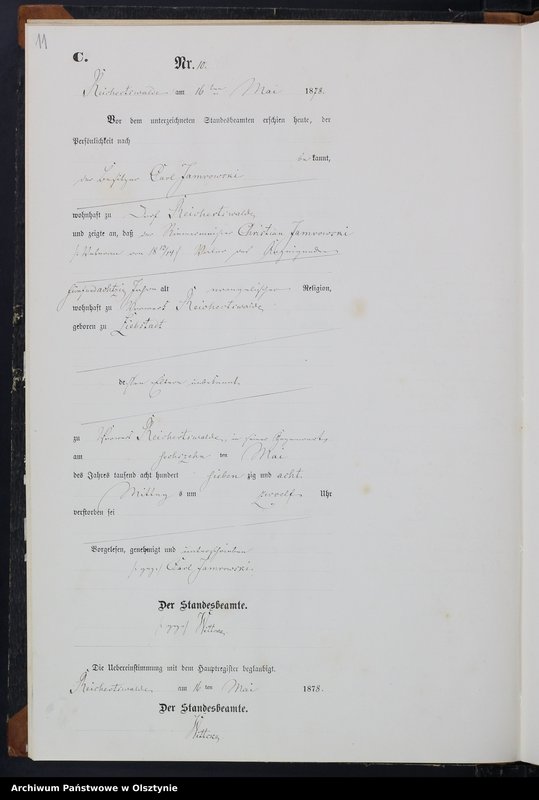 11
C.
Nr. 10.
Reichertswalde am 16 ten Mai 1878.
Vor dem unterzeichneten Standesbeamten erschien heute, der
Persönlichkeit nach
be kannt,
der Besitzer Carl Jamrowski
wohnhaft zu Dorf Reichertswalde
und zeigte an, daß der Christian Jamrowski
Vater des
fünfundachtzig Jahre alt evangelischer Religion,
wohnhaft zu Vorwerk Reichertswalde
geboren zu Liebstadt
dessen Eltern unbekannt
zu Vorwerk Reichertswalde, in seiner Gegenwart
am sechszehn ten Mai
des Jahres tausend acht hundert sieben zig und acht
Mittag s um zwoelf Uhr
verstorben sei
Vorgelesen, genehmigt und unterschrieben
(gez) Carl Jamrowski.
Der Standesbeamte.
(gez)
Die Uebereinstimmung mit dem Hauptregister beglaubigt.
Reichertswalde am 16 ten Mai 1878.
Der Standesbeamte.
Archiwum Państwowe w Olsztynie